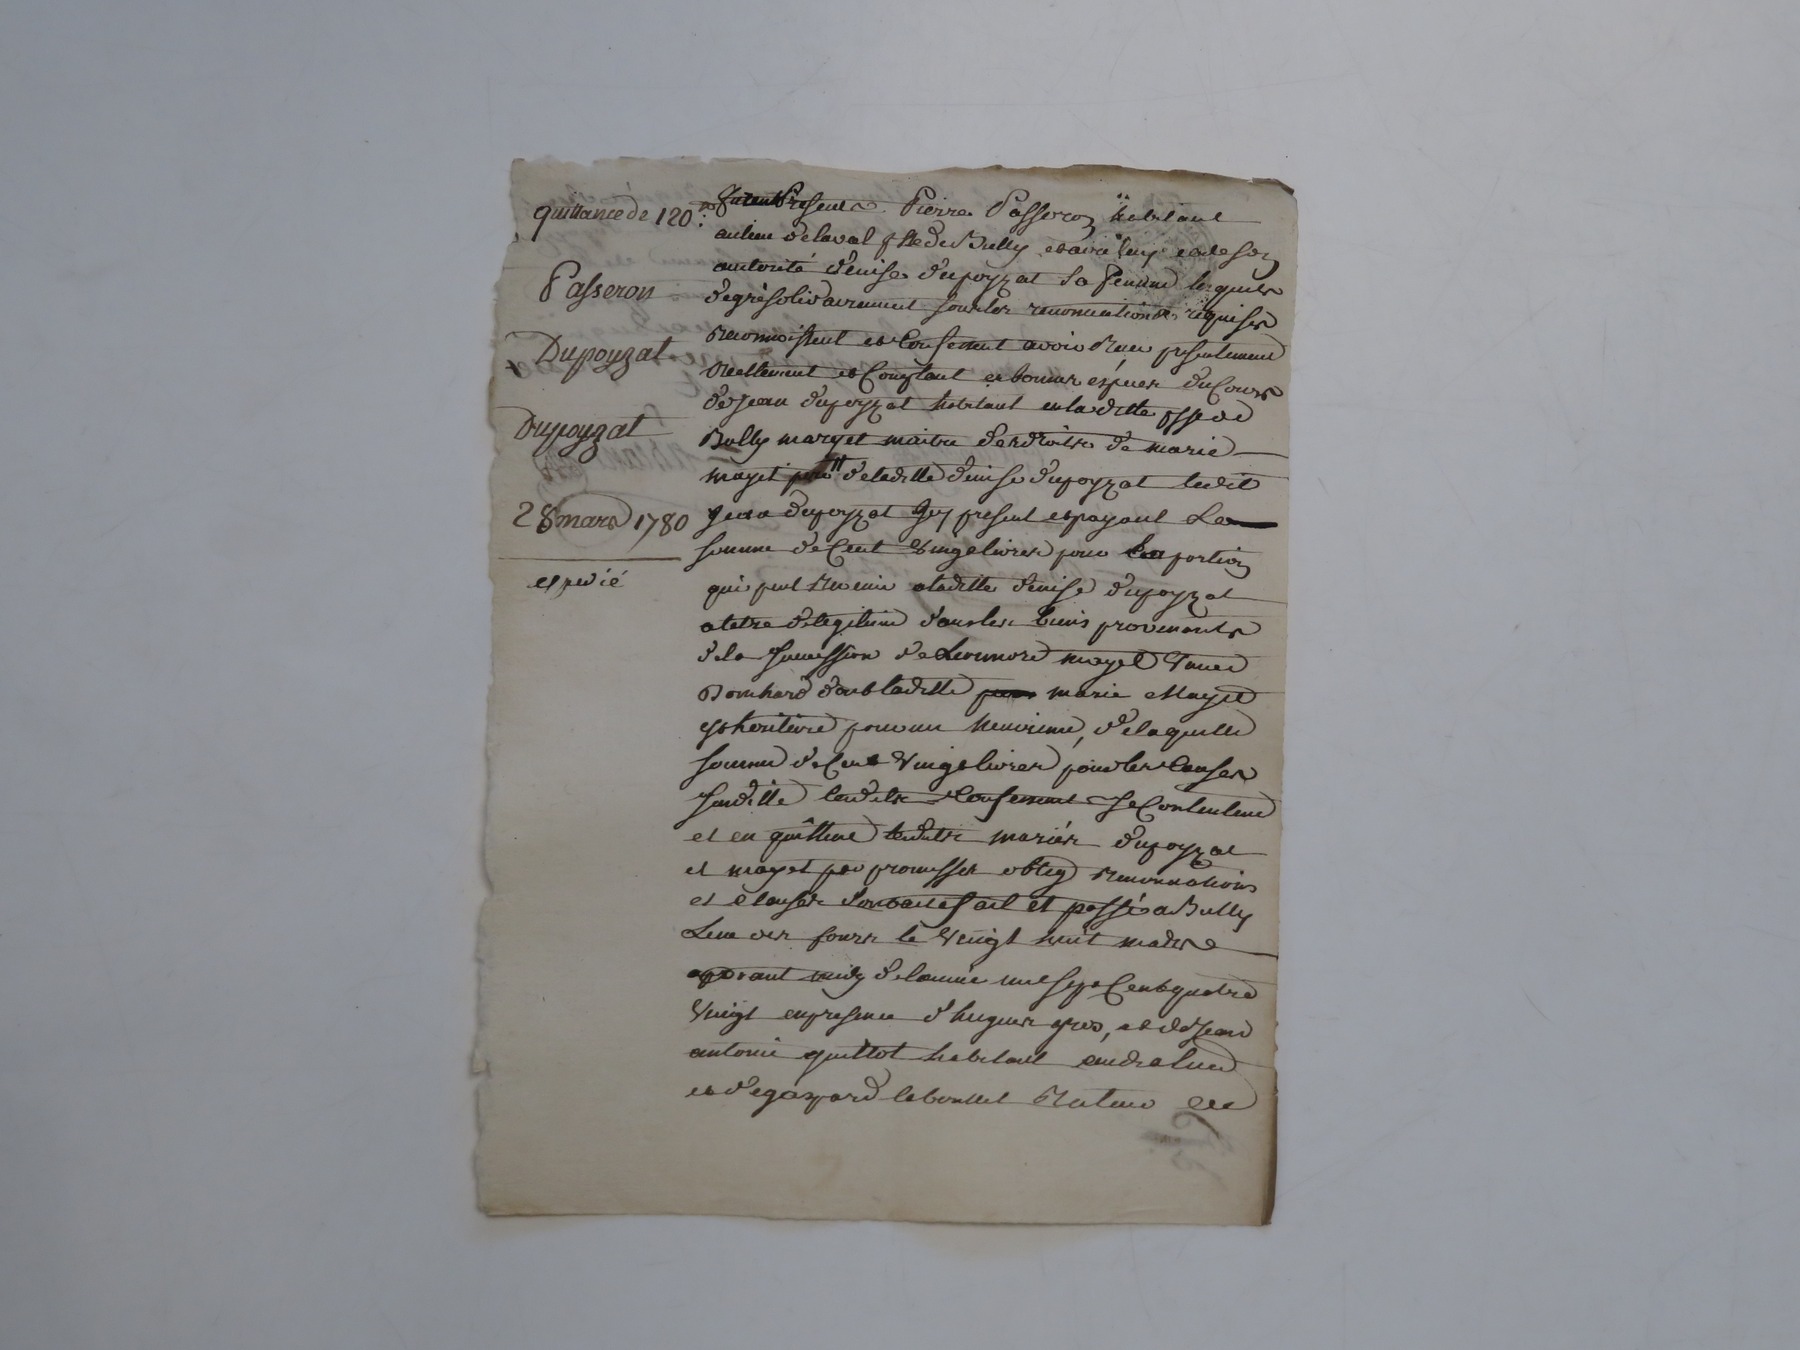 quittance de 120 #
Passeron
Dupoyzat
Dupoyzat
28 mars 1780
expedié
Furent Presents Pierre Passeron habitant
au lieu de laval psse de Bully et avec luy et de son
autorité denise dupoyzat sa femme lesquels
de gré solidairement sous les renonciations requises
reconnoissent et Confessent avoir Recu presentement
Reellement et Comptant en bonnes especes du Cours
de jean dupoyzat habitant en la ditte psse de
Bully mary et maitre des droits de marie
mayet de la ditte denise dupoyzat le dit
jean dupoyzat icy present et payant La
somme de Cent Vingt livres pour la portion
qui peut Revenir a la ditte denise dupoyzat
a titre de legitime dans les biens provenants
de la succession de Leonnord mayet Veuve
Bonhard dont la ditte marie Mayet
est heritiere pour un neuvieme, de laquelle
somme de Cent Vingt livres pour les Causes
susditte les dits Confessent se Contentent
et en quittent les dits mariés dupoyzat
et mayet par promesses oblig renonciations
et clauses dont acte fait et passé a Bully
L'une des fours le Vingt huit mars
avant midy de l'année mil sept Cent quatre
Vingt en presence d'hugues gros, et de Jean
antoine quittot habitant audit lieu
et de gaspard